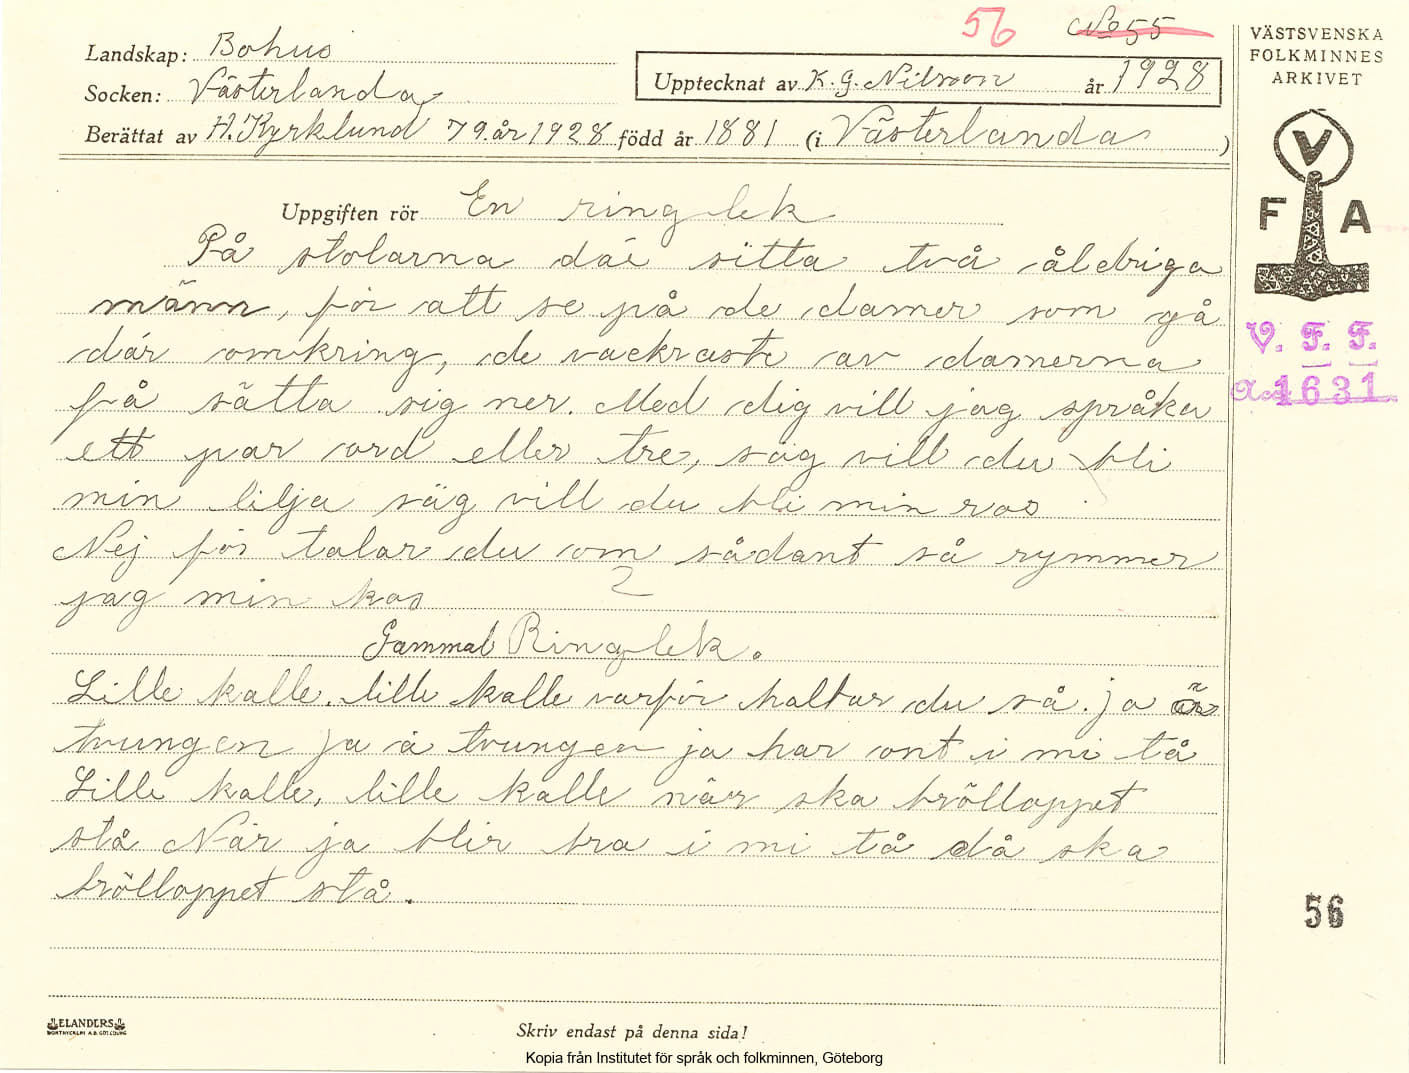 56 No 55
Landskap: Bohus
Socken: Västerlanda
Upptecknat av K. G. Nilsson år 1928
Berättat av H. Kyrklund 79 år 1928 född år 1881 (i Västerlanda)
Uppgiften rör En ringlek
På stolarna där sitta två åldriga
männ, för att se på de damer som gå
där omkring, de vackraste av damerna
få sätta sig ner. Med dig vill jag språka
ett par ord eller tre, säg vill du bli
min lilja säg vill du bli min ros
Nej för talar du om sådant så rymmer
jag min kos
2
Gammal Ringlek.
Lille kalle, lille kalle varför haltar du så. ja är
tvungen ja ä tvungen ja har ont i mi tå
Lille kalle, lille kalle när ska brölloppet
stå När ja blir bra i mi tå då ska
brölloppet stå.
VÄSTSVENSKA
FOLKMINNES
ARKIVET
V
F A
V. F. F.
Acc. 1631
56
ELANDERS
BOKTRYCKERI A.B. GÖTEBORG
Skriv endast på denna sida!
Kopia från Institutet för språk och folkminnen, Göteborg